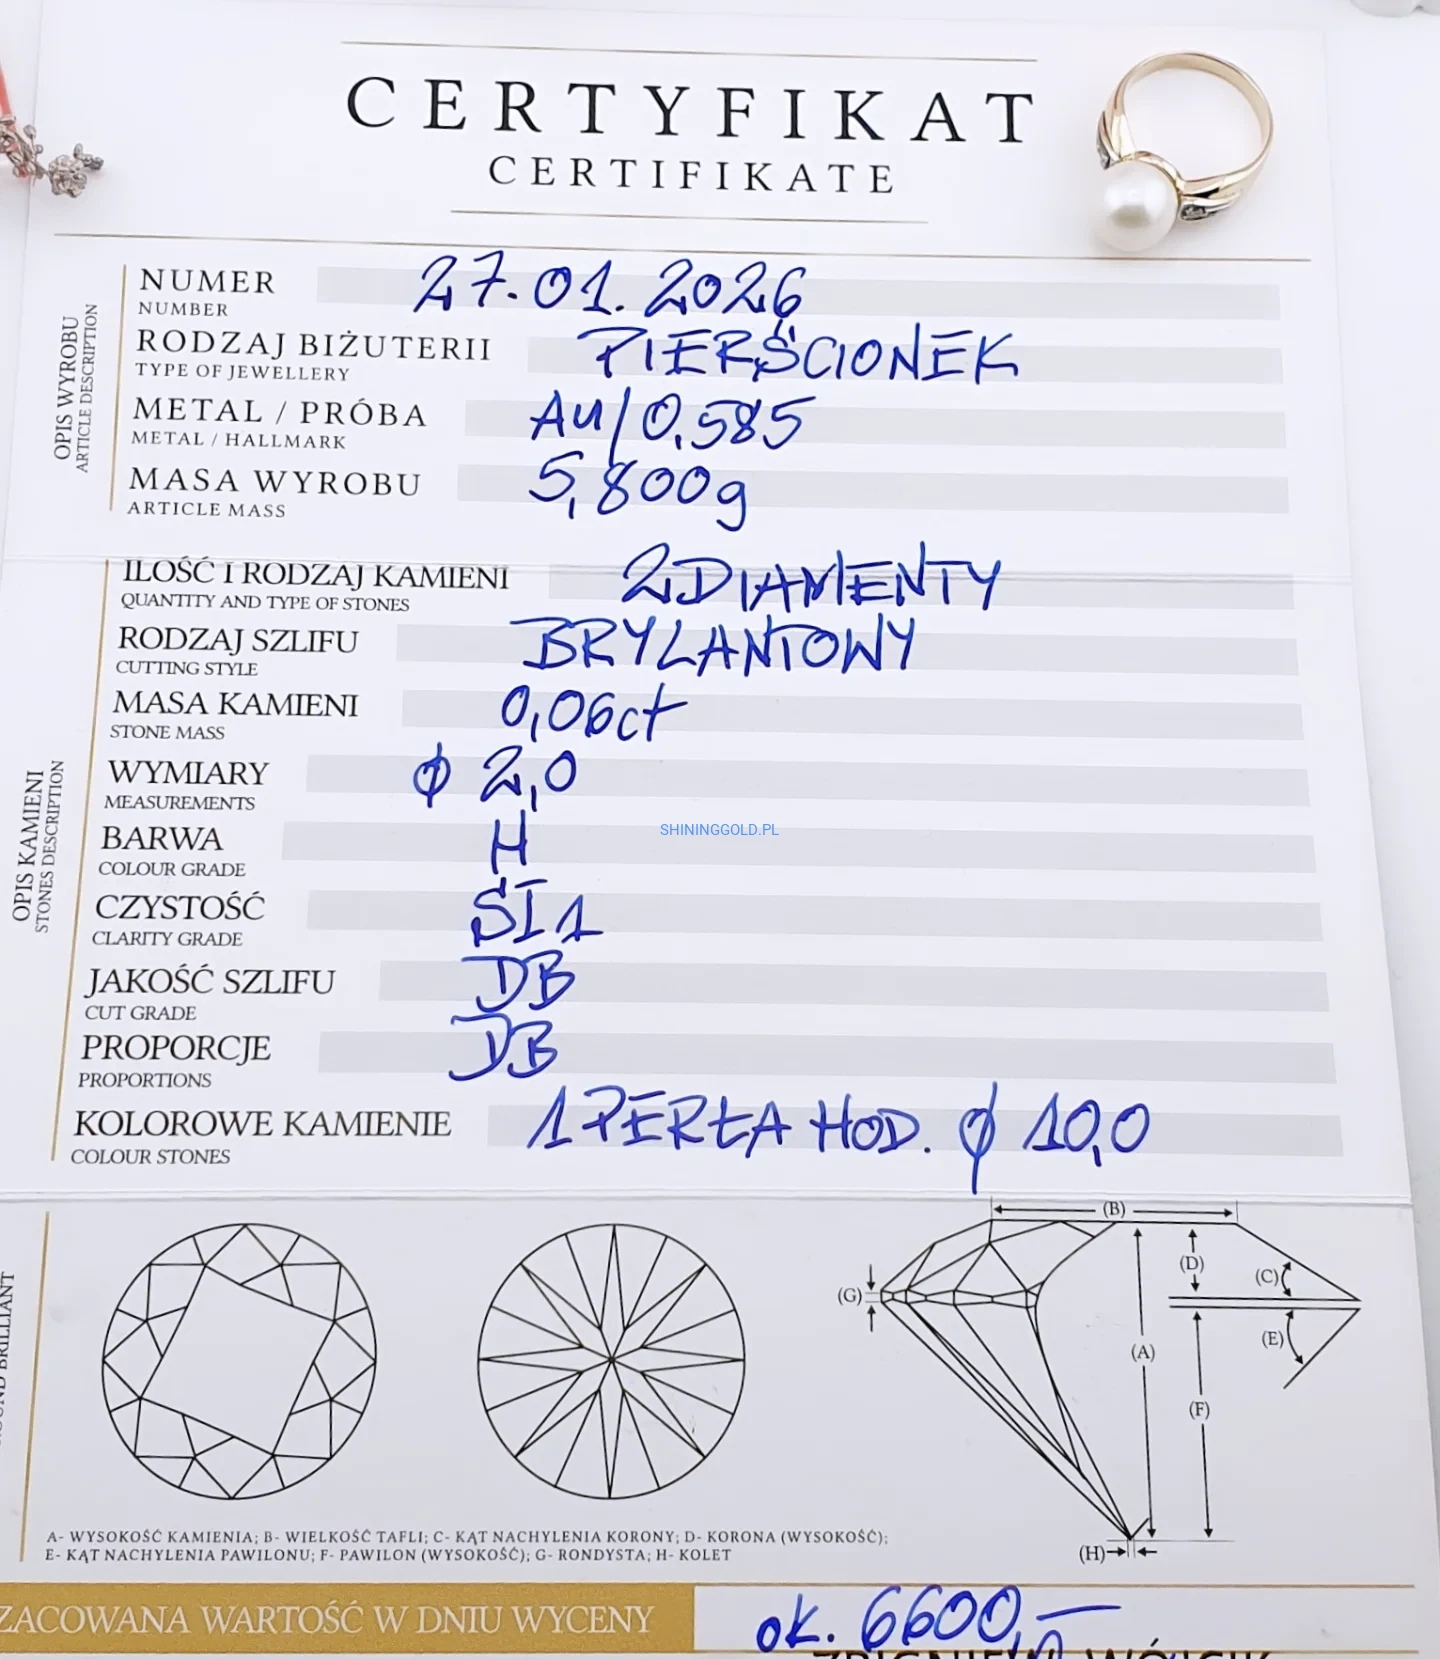 CERTYFIKAT
CERTIFIKATE
OPIS WYROBU
ARTICLE DESCRIPTION
NUMER 27.01.2026
NUMBER
RODZAJ BIŻUTERII PIERŚCIONEK
TYPE OF JEWELLERY
METAL / PRÓBA Au/0,585
METAL / HALLMARK
MASA WYROBU 5,800g
ARTICLE MASS
OPIS KAMIENI
STONES DESCRIPTION
ILOŚĆ I RODZAJ KAMIENI 2 DIAMENTY
QUANTITY AND TYPE OF STONES
RODZAJ SZLIFU BRYLANTOWY
CUTTING STYLE
MASA KAMIENI 0,06ct
STONE MASS
WYMIARY ϕ 2,0
MEASUREMENTS
BARWA H
SHININGGOLD.PL
COLOUR GRADE
CZYSTOŚĆ SI1
CLARITY GRADE
JAKOŚĆ SZLIFU DB
CUT GRADE
PROPORCJE DB
PROPORTIONS
KOLOROWE KAMIENIE 1 PERŁA HOD. ϕ 10,0
COLOUR STONES
BRILLIANT
(B)
(D)
(C)
(G)
(E)
(A)
(F)
(H)
A- WYSOKOŚĆ KAMIENIA; B- WIELKOŚĆ TAFLI; C- KĄT NACHYLENIA KORONY; D- KORONA (WYSOKOŚĆ);
E- KĄT NACHYLENIA PAWILONU; F- PAWILON (WYSOKOŚĆ); G- RONDYSTA; H- KOLET
ZACOWANA WARTOŚĆ W DNIU WYCENY ok. 6600,—